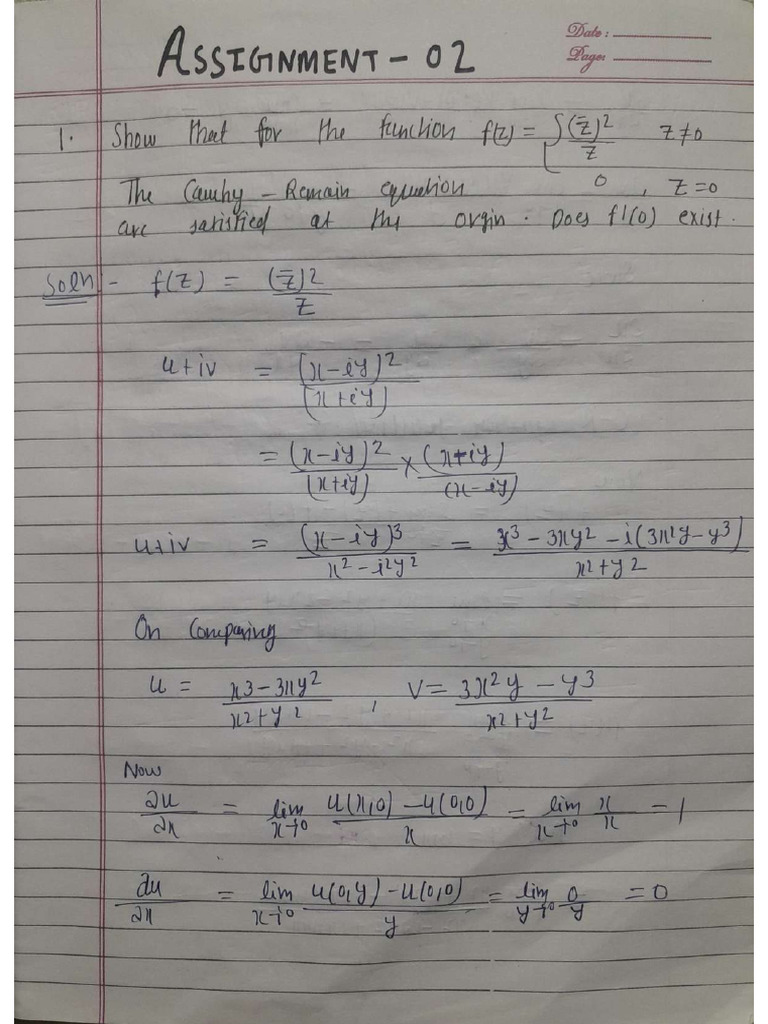 Date:
Page:
ASSIGNMENT - 02
1. Show that for the function f(z) = { (z̄)²/z z≠0
0 , z=0
The Cauhy - Remain equation
are satisfied at the orgin. Does f'(0) exist.
Soln - f(z) = (z̄)²/z
u+iv = (x-iy)²/(x+iy)
= (x-iy)²/(x+iy) × (x-iy)/(x-iy)
u+iv = (x-iy)³/(x²-i²y²) = x³-3xy²-i(3x²y-y³)/x²+y²
On Comparing
u = x3-3xy²/x²+y² , V = 3x²y-y3/x²+y²
Now
∂u/∂x = lim x→0 u(x,0)-u(0,0)/x = lim x→0 x/x = 1
∂u/∂x = lim x→0 u(0,y)-u(0,0)/y = lim y→0 0/y = 0